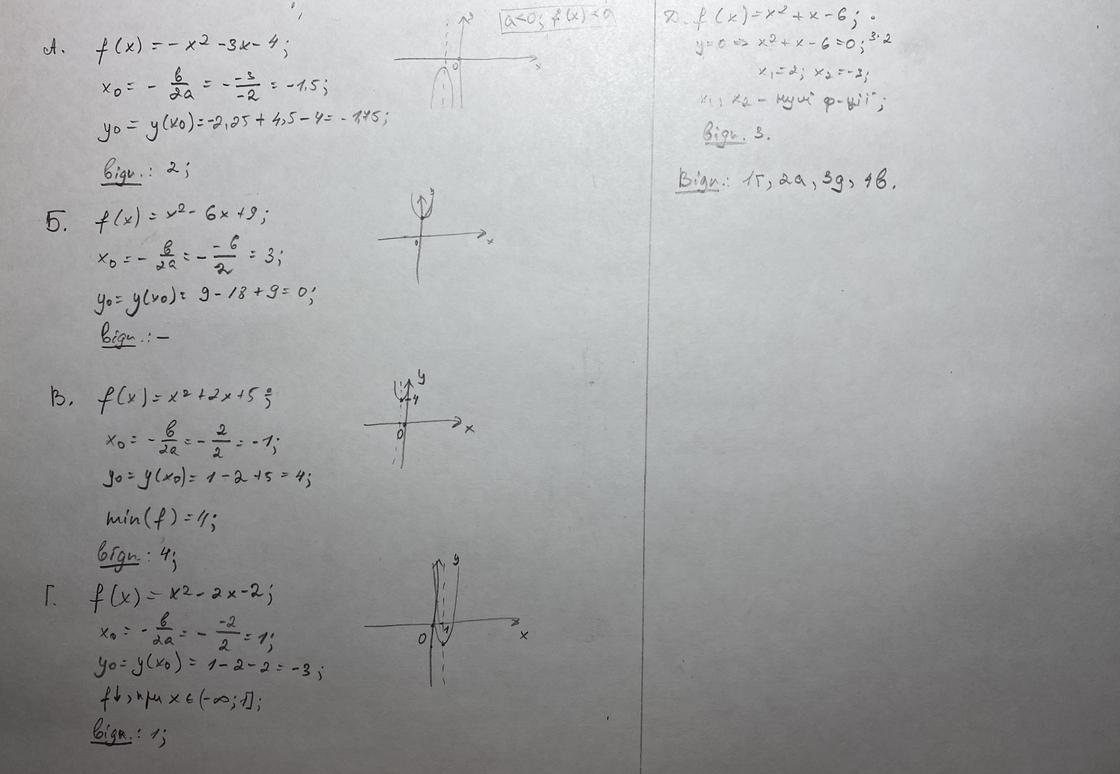 a<0; f(x)<0
А. f(x) = -x² -3x-4;
x₀ = - b/2a = - -3/-2 = -1,5;
y₀ = y(x₀) = -2,25 + 4,5 - 4 = -1,75;
Відп.: 2;
Б. f(x) = x² - 6x + 9;
x₀ = - b/2a = - -6/2 = 3;
y₀ = y(x₀) = 9 - 18 + 9 = 0;
Відп.: —
В. f(x) = x² + 2x + 5;
x₀ = - b/2a = - 2/2 = -1;
y₀ = y(x₀) = 1 - 2 + 5 = 4;
min(f) = 4;
Відп.: 4;
Г. f(x) = x² - 2x - 2;
x₀ = - b/2a = - -2/2 = 1;
y₀ = y(x₀) = 1 - 2 - 2 = -3;
f↓, при x ∈ (-∞; 1];
Відп.: 1;
Д. f(x) = x² + x - 6;
y=0 ⇒ x² + x - 6 = 0; 3·2
x₁ = 2; x₂ = -3;
x₁; x₂ – нулі ф-ції;
Відп. 3.
Відп.: 1г, 2а, 3д, 4в.
y
0
x
y
0
x
y
4
0
x
y
0
1
x